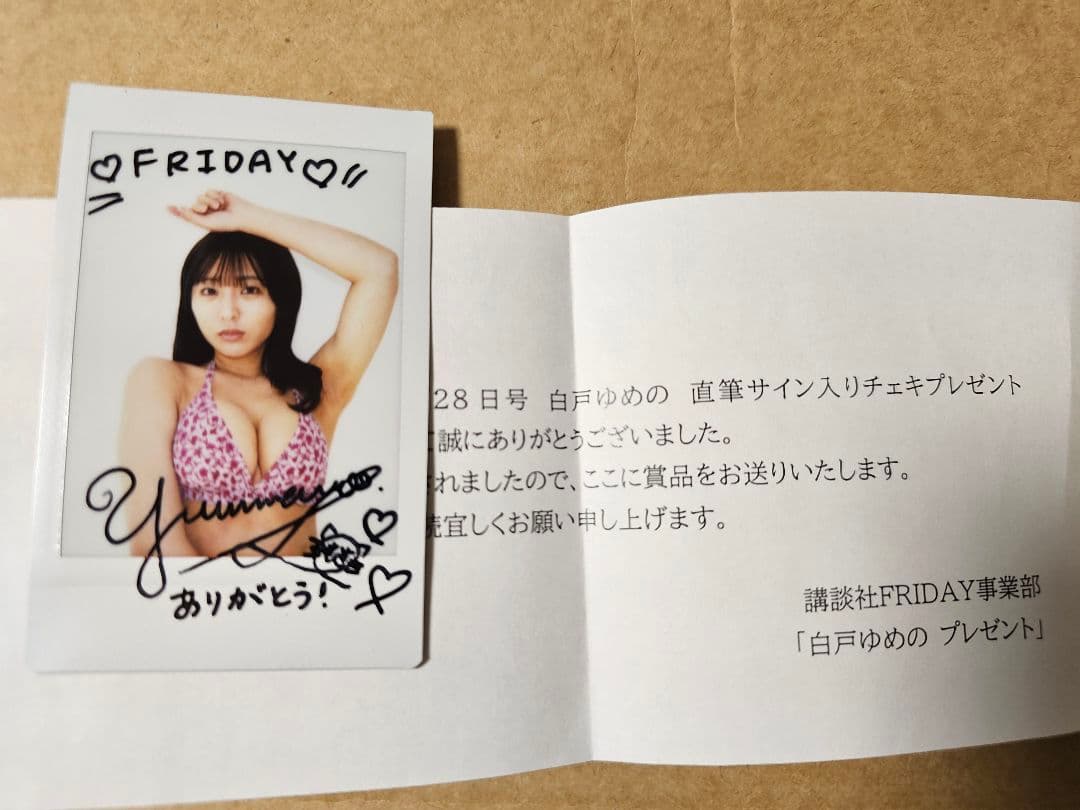 ♡FRIDAY♡
Yumeno.
ありがとう!
28日号 白戸ゆめの 直筆サイン入りチェキプレゼント
誠にありがとうございました。
れましたので、ここに賞品をお送りいたします。
続宜しくお願い申し上げます。
講談社FRIDAY事業部
「白戸ゆめの プレゼント」